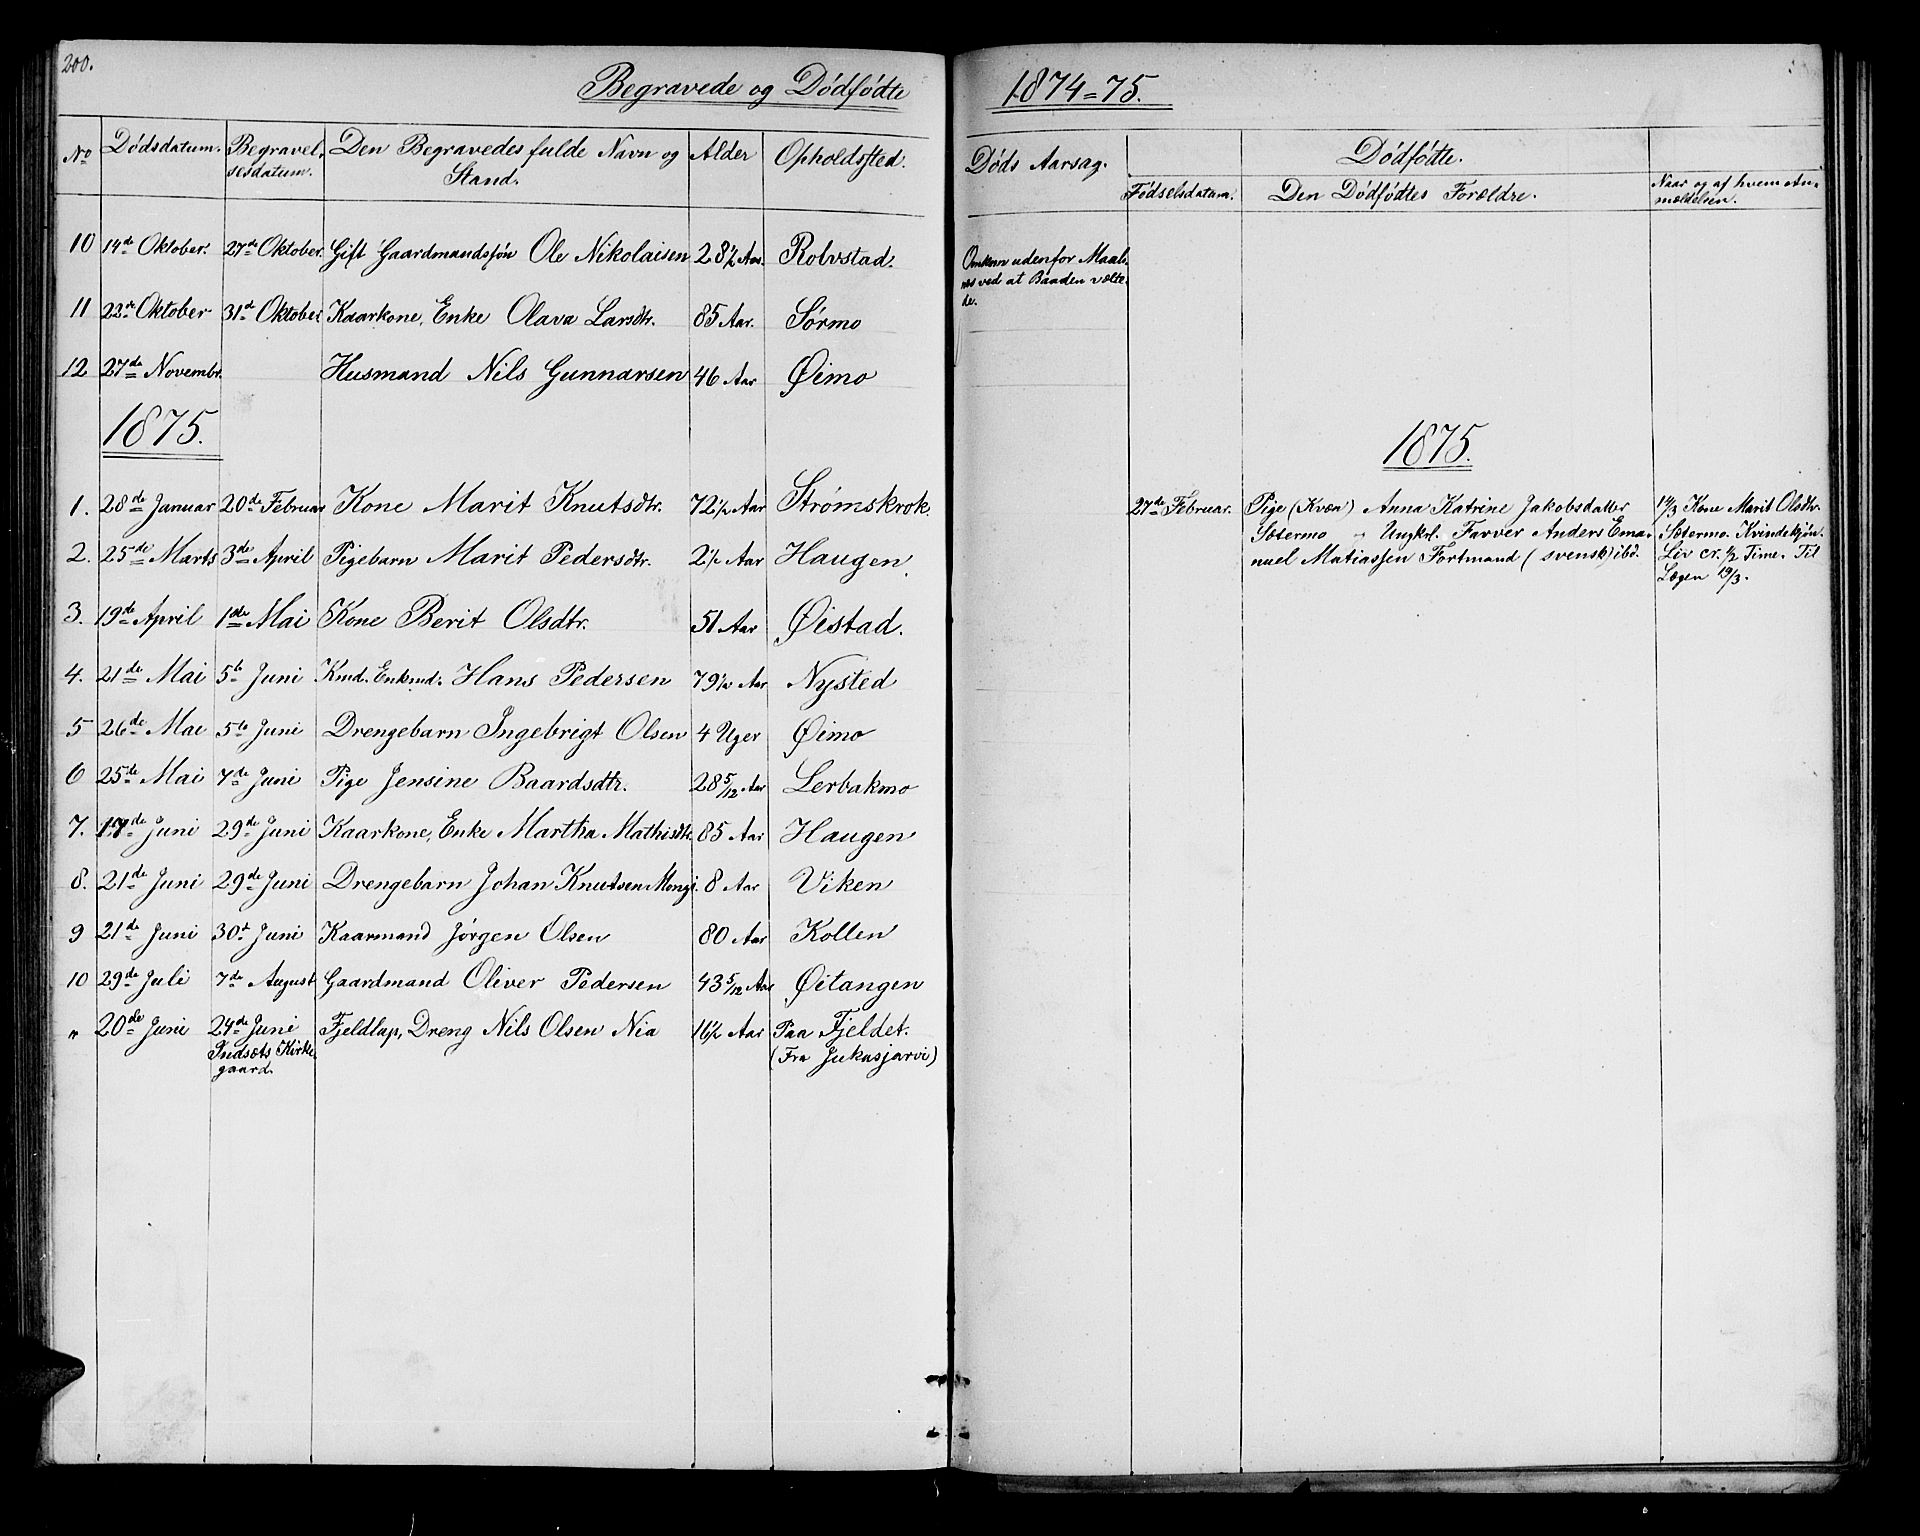 200.
Begravede og Dödfödte
1874=75.
No Dödsdatum. Begravel- Den Begravedes fulde Navn og Alder Opholdssted.
sesdatum. Stand.
Döds Aarsag. Dödfödte.
Födselsdatum. Den Dödfödtes Forældre. Naar og af hvem An-
mældelsen.
10 14de Oktober. 27de Oktober. Gift Gaardmandssön Ole Nikolaisen 28 1/2 Aar. Robvstad. Omkom udenfor Maals-
næs ved at Baaden vælte-
de.
11 22de Oktober 31de Oktober Kaarkone, Enke Olava Larsdtr. 85 Aar. Sörmo
12 27de Novembr. Husmand Nils Gunnarsen 46 Aar Øimo
1875.
1875.
1. 28de Januar 20de Februar Kone Marit Knutsdtr. 72 1/2 Aar Strömskrok.
27de Februar. Pige (Kvæn) Anna Katrine Jakobsdatter 14/3 Kone Marit Olsdtr.
Sætermo og Ungkrl. Farver Anders Ema- Sætermo. Kvindekjön.
nuel Matiassen Fortmand (svensk) ibd. Liv cr. 1/2 Time. Til
Lægen 19/3.
2. 25de Marts 3de April Pigebarn Marit Pedersdtr. 2 1/2 Aar Haugen
3. 19de April 1de Mai Kone Berit Olsdtr. 51 Aar Øistad.
4. 21de Mai 5te Juni Kmd. Enkmd. Hans Pedersen 79 1/2 Aar Nysted
5 26de Mai 5te Juni Drengebarn Ingebrigt Olsen 4 Uger Øimo
6 25de Mai 7de Juni Pige Jensine Baardsdtr. 28 5/12 Aar Lerbakmo
7. 17de Juni 29de Juni Kaarkone, Enke Martha Mathisdtr. 85 Aar Haugen
8. 21de Juni 29de Juni Drengebarn Johan Knutsen Mongi. 8 Aar Viken
9 21de Juni 30d Juni Kaarmand Jörgen Olsen 80 Aar Kollen
10 29de Juli 7de August Gaardmand Oliver Pedersen 43 5/12 Aar Øitangen
" 20de Juni 24de Juni Fjeldlap, Dreng Nils Olsen Nia 16 1/2 Aar Paa Fjeldet.
Indsæts Kirke- (Fra Jukasjarvi)
gaard.